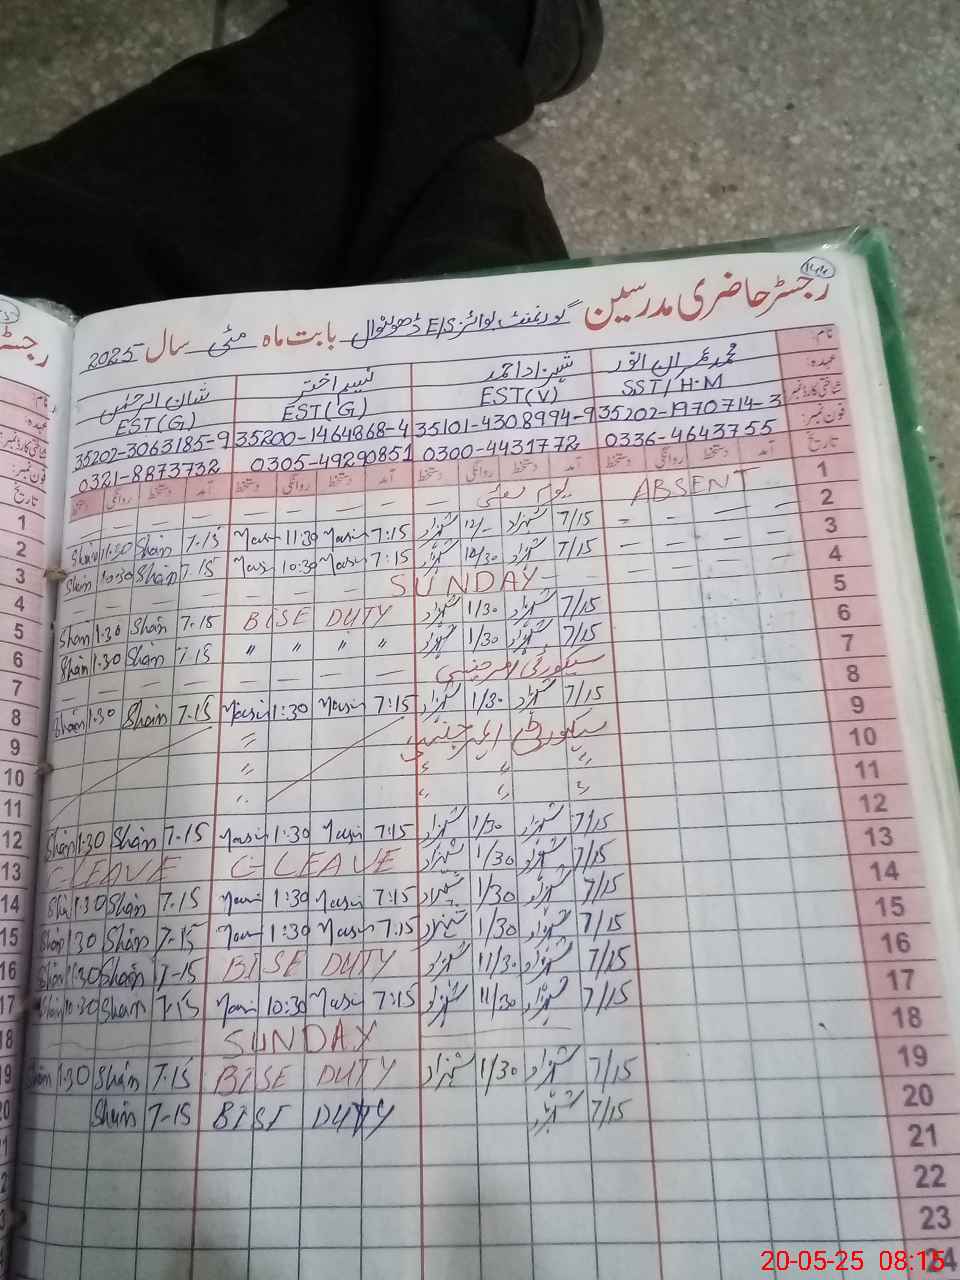 رجسٹر حاضری مدرسین گورنمنٹ بوائز E/S ڈھوٹوال بابت ماہ مئی سال 2025
نام: محمد عمران انور شہزاد احمد نسیم اختر شان الرحمن
عہدہ: SST/H·M EST(V) EST(G) EST(G)
شناختی کارڈ نمبر: 35202-1970714-3 35101-4308994-9 35200-1464868-4 35202-3063185-9
فون نمبر: 0336-4643755 0300-4431772 0305-49290851 0321-8873732
تاریخ آمد دستخط روانگی دستخط آمد دستخط روانگی دستخط آمد دستخط روانگی دستخط آمد دستخط روانگی
1 ABSENT — — — — — — — —
2 — — — — 7/15 شہزاد 12/- شہزاد 7:15 Nasim 11:30 Nasim 7.15 Shan 11:30 Shan
3 — — — — 7/15 شہزاد 10/30 شہزاد 7:15 Nasim 10:30 Nasim 7.15 Shan 10:30 Shan
4 SUNDAY — — — —
5 7/15 شہزاد 1/30 شہزاد BISE DUTY 7.15 Shan 1.30 Shan
6 7/15 شہزاد 1/30 شہزاد " " " " 7.15 Shan 1.30 Shan
7 سیکورٹی ایمرجنسی — — — —
8 7/15 شہزاد 1/30 شہزاد 7:15 Nasim 1:30 Nasim 7.15 Shan 1:30 Shan
9 سیکورٹی ایمرجنسی "
10 " " " "
11 " " " "
12 7/15 شہزاد 1/30 شہزاد 7:15 Nasim 1:30 Nasim 7.15 Shan 1.30 Shan
13 7/15 شہزاد 1/30 شہزاد C-LEAVE C-LEAVE
14 7/15 شہزاد 1/30 شہزاد 7:15 Nasim 1:30 Nasim 7.15 Shan 1:30 Shan
15 7/15 شہزاد 1/30 شہزاد 7:15 Nasim 1:30 Nasim 7-15 Shan 1.30 Shan
16 7/15 شہزاد 11/30 شہزاد BISE DUTY 7-15 Shan 11:30 Shan
17 7/15 شہزاد 11/30 شہزاد 7:15 Nasim 10:30 Nasim 7.15 Shan 10:30 Shan
18 SUNDAY
19 7/15 شہزاد 1/30 شہزاد BISE DUTY 7.15 Shan 1.30 Shan
20 7/15 شہزاد BISE DUTY 7-15 Shan
21
22
23
24
20-05-25 08:15